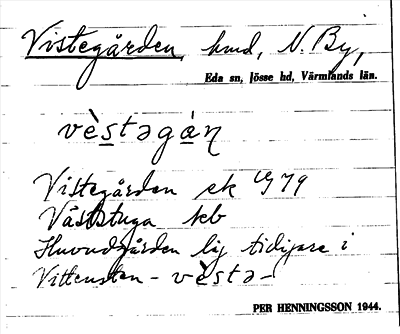 Vistegården, hmd, N. By,
Eda sn, Jösse hd, Värmlands län.
vès̲təgá̲n
Vistegården ek 79
Väststuga kb
Huvudgården låg tidigare i
Vittensten - vèstə-
PER HENNINGSSON 1944.